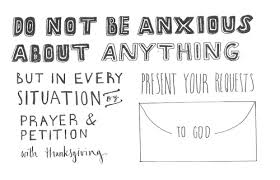 DO NOT BE ANXIOUS
ABOUT ANYTHING
BUT IN EVERY
SITUATION BY
PRAYER &
PETITION
with thanksgiving
PRESENT YOUR REQUESTS
TO GOD